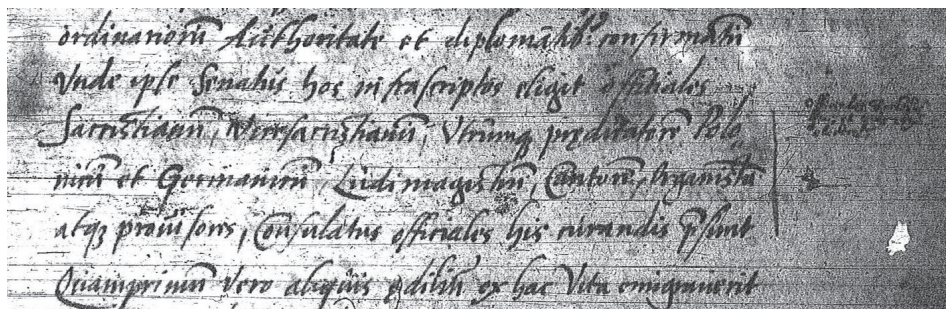 ordinariorũ Authoritate et diplomatib9 confirmatũ
Vnde ipse Senatus hos infrascriptos eligit officiales
Sacristianũ, Vicesacristianũ, Vtrũmq prędicatorẽ Polo
nicũ et Germanicũ, Ludimagistrũ, Cantorẽ, Organistã
atq provisores, Consulatus officiales his curandis p̃sunt
Quamprimũ vero aliquis ędiliũ ex hac Vita emigraverit